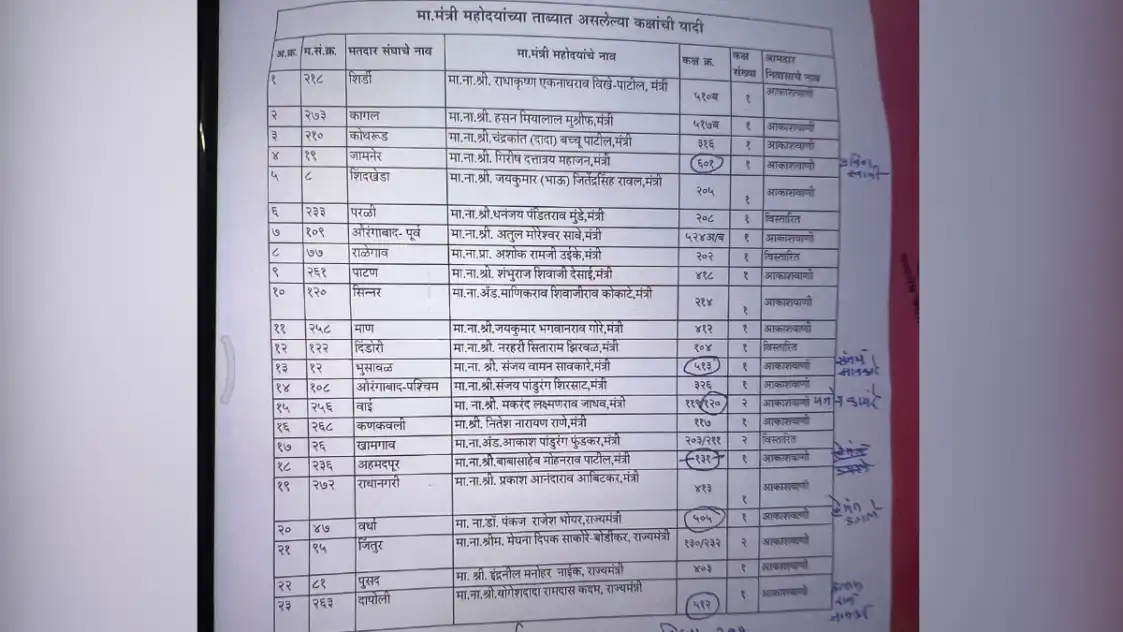 मा.मंत्री महोदयांच्या ताब्यात असलेल्या कक्षांची यादी
अ.क्र. म.सं.क्र. मतदार संघाचे नाव मा.मंत्री महोदयांचे नाव कक्ष क्र. कक्ष संख्या आमदार निवासाचे नाव
१ २१८ शिर्डी मा.ना.श्री. राधाकृष्ण एकनाथराव विखे-पाटील, मंत्री ५१०ब १ आकाशवाणी
२ २७३ कागल मा.ना.श्री. हसन मियालाल मुश्रीफ,मंत्री ५१७ब १ आकाशवाणी
३ २१० कोथरूड मा.ना.श्री.चंद्रकांत (दादा) बच्चू पाटील,मंत्री ३१६ १ आकाशवाणी
४ १९ जामनेर मा.ना.श्री. गिरीष दत्तात्रय महाजन,मंत्री ६०१ १ आकाशवाणी
५ ८ शिंदखेडा मा.ना.श्री. जयकुमार (भाऊ) जितेंद्रसिंह रावल,मंत्री २०५ १ आकाशवाणी
६ २३३ परळी मा.ना.श्री.धनंजय पंडितराव मुंडे,मंत्री २०८ १ विस्तारित
७ १०९ औरंगाबाद- पूर्व मा.ना.श्री. अतुल मोरेश्वर सावे,मंत्री ५२४अ/ब १ आकाशवाणी
८ ७७ राळेगाव मा.ना.प्रा. अशोक रामजी उईके,मंत्री २०२ १ विस्तारित
९ २६१ पाटण मा.ना.श्री. शंभुराज शिवाजी देसाई,मंत्री ४१८ १ आकाशवाणी
१० १२० सिन्नर मा.ना.अॅड.माणिकराव शिवाजीराव कोकाटे,मंत्री २१४ १ आकाशवाणी
११ २५८ माण मा.ना.श्री.जयकुमार भगवानराव गोरे,मंत्री ४१२ १ आकाशवाणी
१२ १२२ दिंडोरी मा.ना.श्री. नरहरी सिताराम झिरवळ,मंत्री १०४ १ विस्तारित
१३ १२ भुसावळ मा.ना. श्री. संजय वामन सावकारे,मंत्री ५१३ १ आकाशवाणी
१४ १०८ औरंगाबाद-पश्चिम मा.ना.श्री.संजय पांडुरंग शिरसाट,मंत्री ३२६ १ आकाशवाणी
१५ २५६ वाई मा. ना.श्री. मकरंद लक्ष्मणराव जाधव,मंत्री ११९/१२० २ आकाशवाणी
१६ २६८ कणकवली मा.श्री. नितेश नारायण राणे,मंत्री ११७ १ आकाशवाणी
१७ २६ खामगाव मा.ना.अॅड.आकाश पांडुरंग फुंडकर,मंत्री २०३/२११ २ विस्तारित
१८ २३६ अहमदपूर मा.ना.श्री.बाबासाहेब मोहनराव पाटील,मंत्री १३१ १ आकाशवाणी
१९ २७२ राधानगरी मा.ना.श्री. प्रकाश आनंदाराव आबिटकर,मंत्री ४१३ १ आकाशवाणी
२० ४७ वर्धा मा. ना.डॉ. पंकज राजेश भोयर,राज्यमंत्री ५०५ १ आकाशवाणी
२१ ९५ जिंतुर मा.ना.श्रीम. मेघना दिपक साकोरे-बोर्डीकर, राज्यमंत्री १३०/२३२ २ आकाशवाणी
२२ ८१ पुसद मा. श्री. इंद्रनील मनोहर नाईक, राज्यमंत्री ४०३ १ आकाशवाणी
२३ २६३ दापोली मा.ना.श्री.योगेशदादा रामदास कदम, राज्यमंत्री ५१२ १ आकाशवाणी